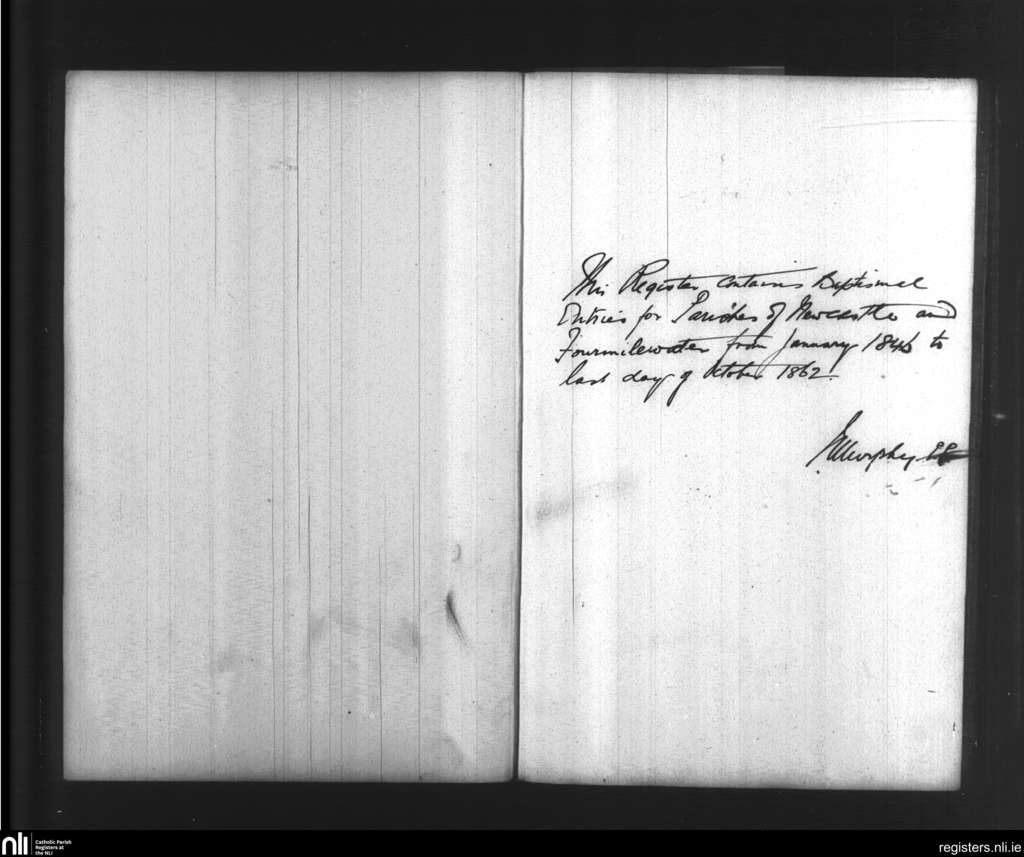 This Register contains Baptismal
Entries for Parishes of Newcastle and
Fourmilewater from January 1846 to
last day of October 1862.
Murphy
nli
Catholic Parish
Registers at
the NLI
registers.nli.ie